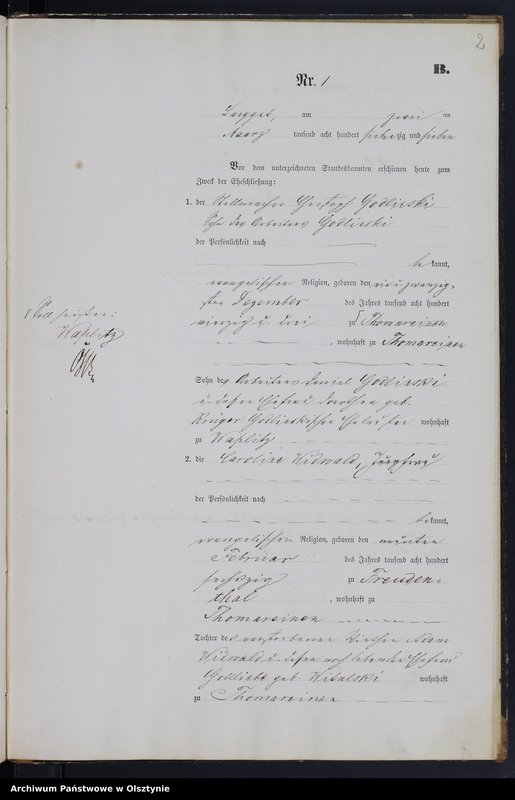 2
B.
Nr. 1
am zwei ten
März tausend acht hundert siebenzig und sieben
Vor dem unterzeichneten Standesbeamten erschienen heute zum
Zweck der Eheschließung:
1. der Stellmacher Godlieski
Sohn des Arbeiters Godlieski
der Persönlichkeit nach
be kannt,
evangelischer Religion, geboren den vier u. zwanzig-
sten Dezember des Jahres tausend acht hundert
vierzig u. drei zu Thomareinen
, wohnhaft zu Thomareinen
(Soll heißen:
Waplitz
Sohn des Arbeiters Daniel Godlieski
u. dessen Ehefrau Dorothea geb.
Krüger Godlieskischen Eheleute wohnhaft
zu Waplitz
2. die Caroline Widwald, Jungfrau
der Persönlichkeit nach
bekannt,
evangelischer Religion, geboren den neunten
Februar des Jahres tausend acht hundert
sechszig zu Freuden-
thal , wohnhaft zu
Thomareinen
Tochter des verstorbenen Adam
Widwald u. dessen noch lebende Ehefrau
Gottliebe geb. Widulski wohnhaft
zu Thomareinen
Archiwum Państwowe w Olsztynie